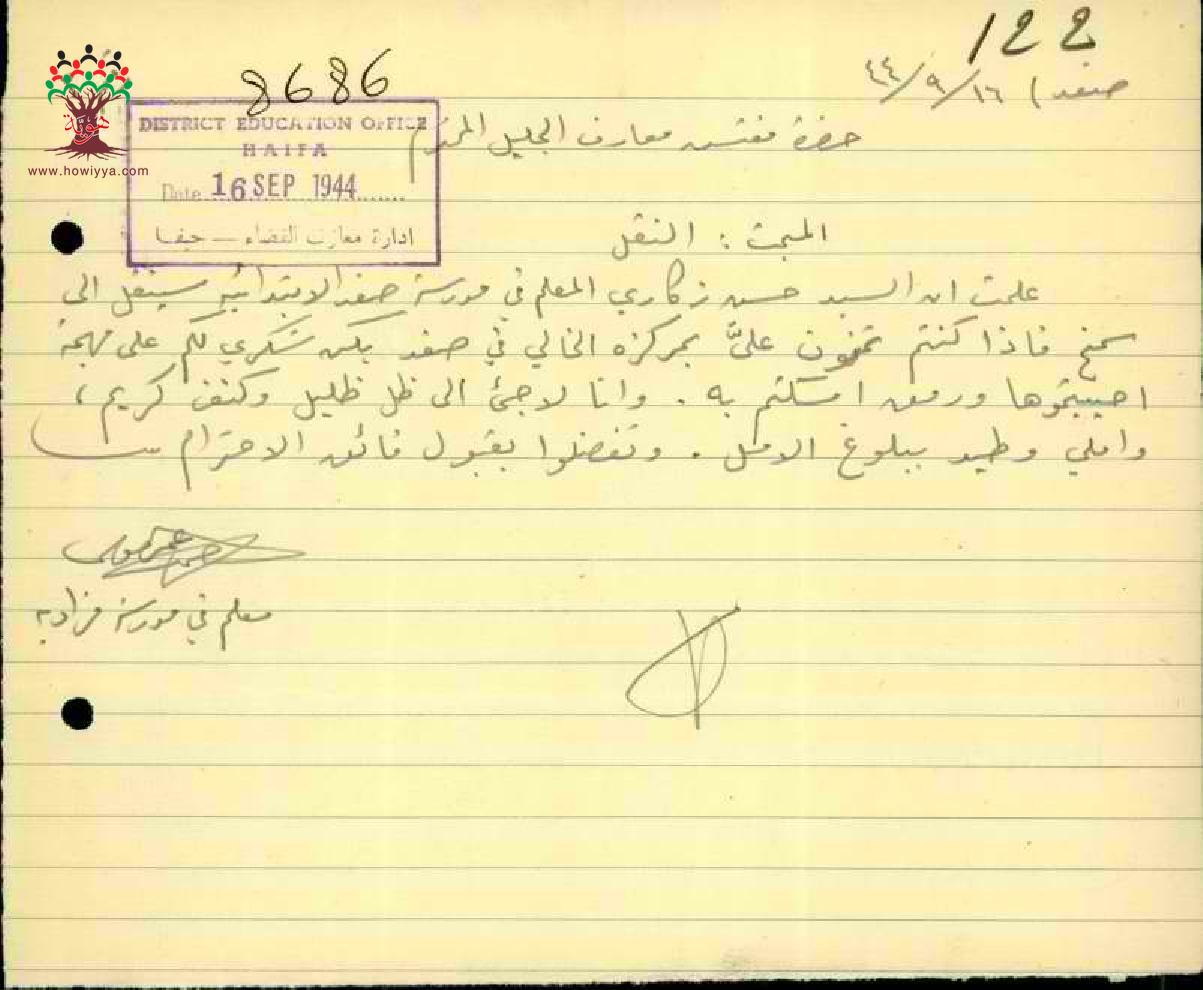 122
صفد) ١٦/٩/٤٤
8686
هوية
www.howiyya.com
DISTRICT EDUCATION OFFICE
HAIFA
Date 16 SEP 1944
ادارة معارف القضاء — حيفا
حضرة مفتش معارف الجليل المحترم
المبحث : النقل
علمت ان السيد حسن زكاري المعلم في مدرسة صفد الابتدائية سينقل الى
سمخ فاذا كنتم تمنون عليَّ بمركزه الخالي في صفد يكن شكري لكم على مهجة
احييتموها ورمق امسكتم به . وانا لاجئ الى ظل ظليل وكنف كريم ،
واملي وطيد ببلوغ الامل . وتفضلوا بقبول فائق الاحترام
معلم في مدرسة فراديه